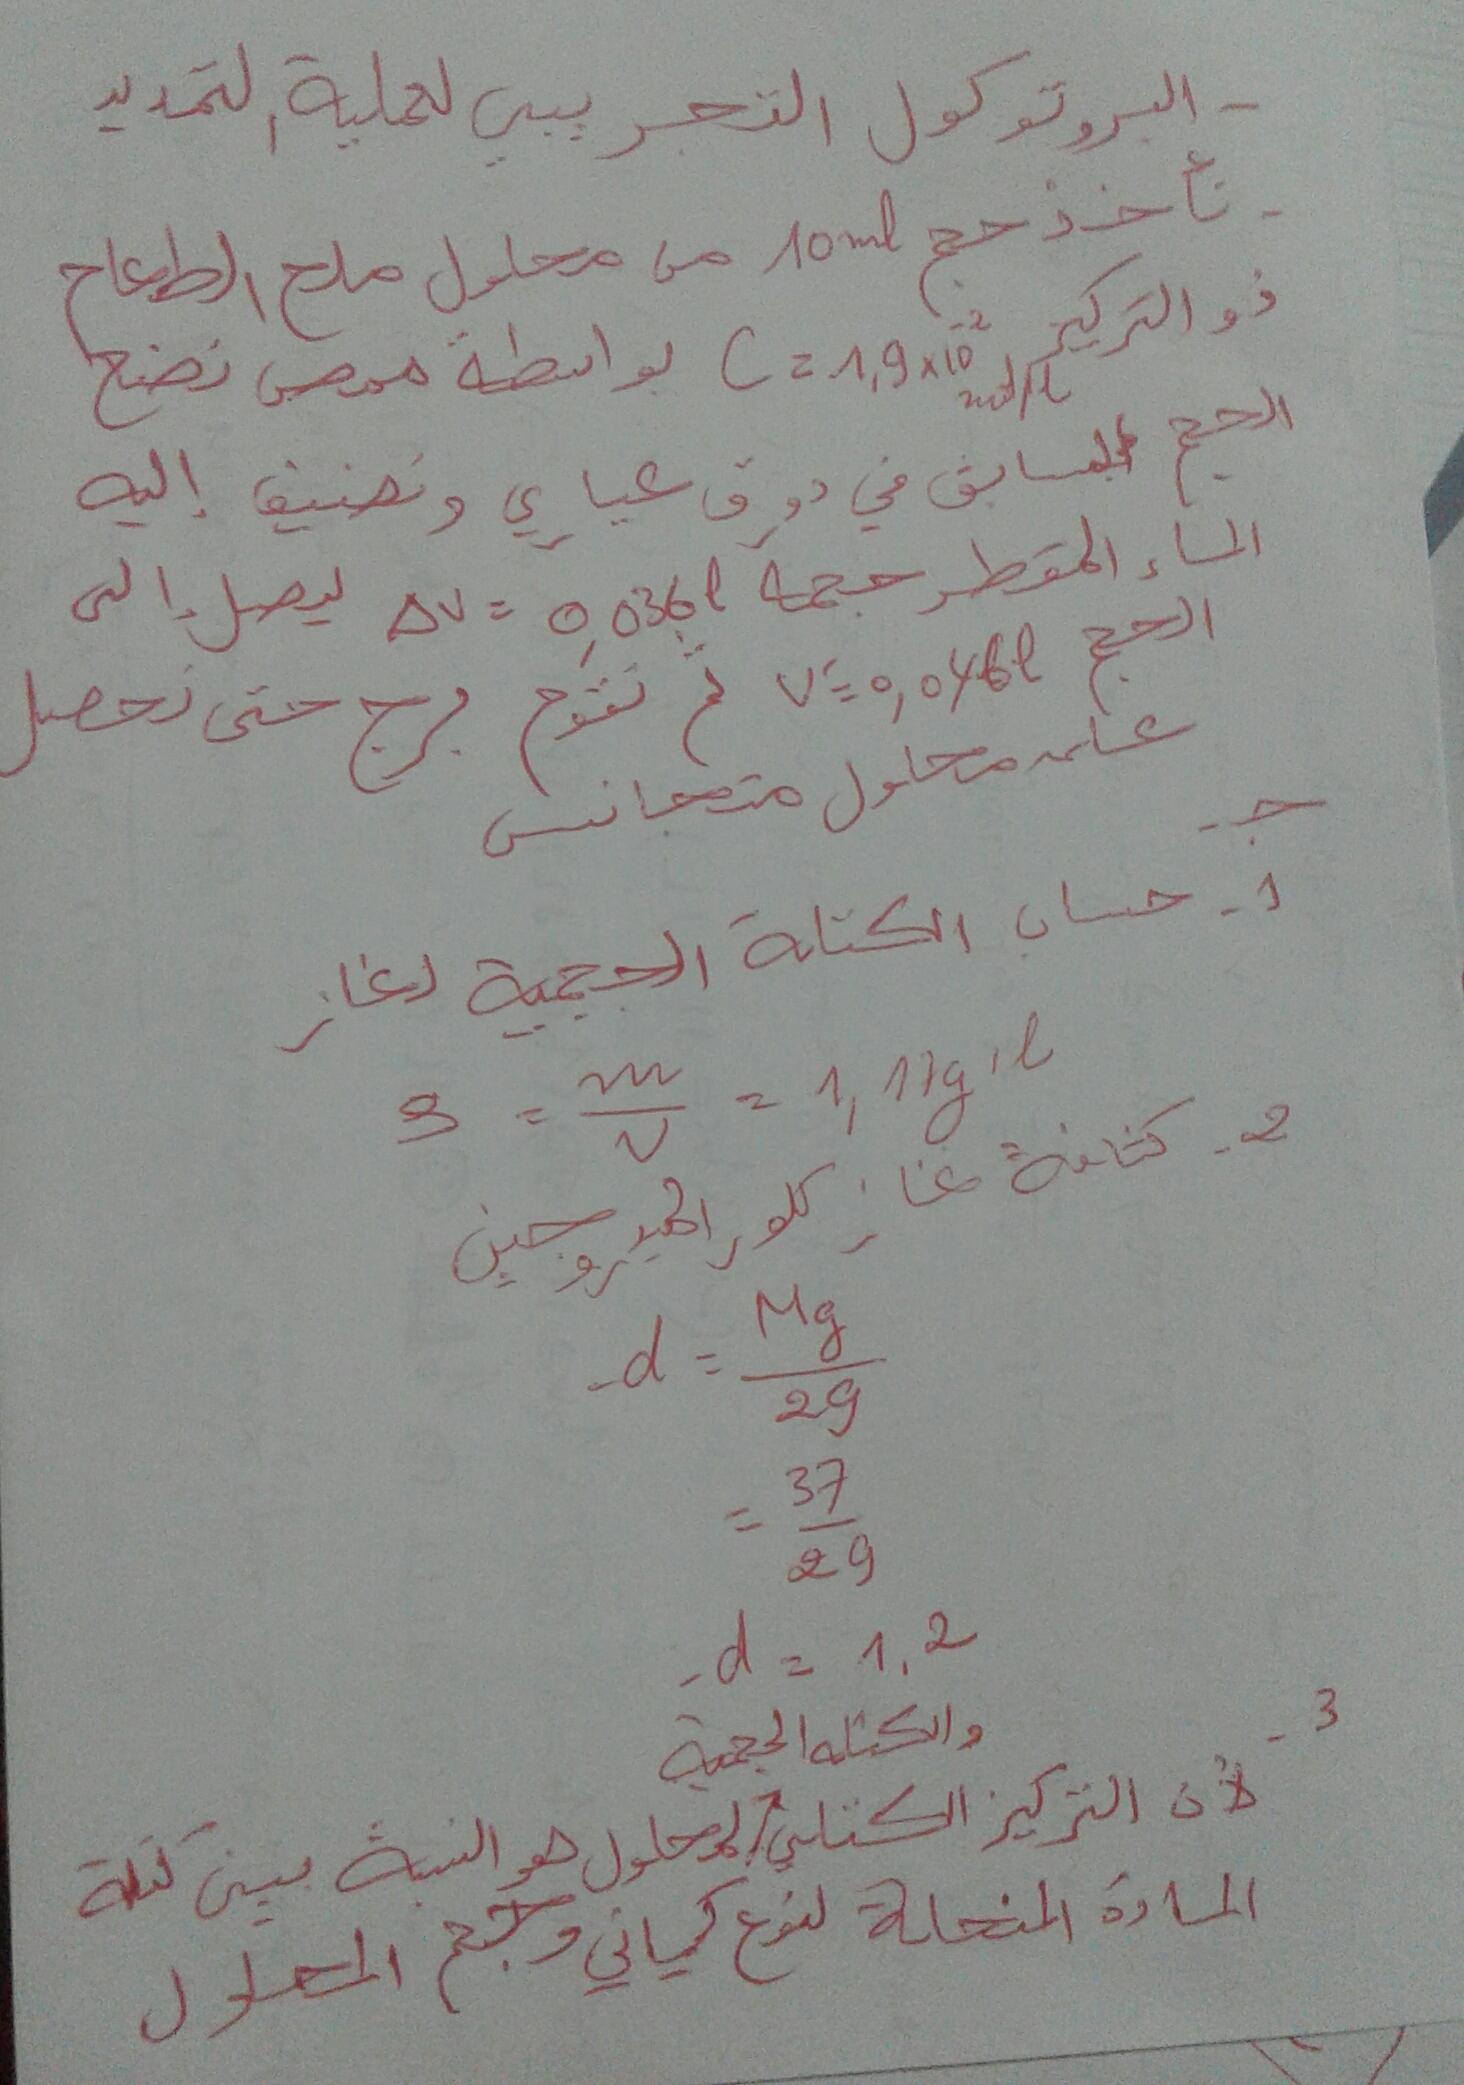 - البروتوكول التجريبي لعملية التمديد
- نأخذ حجم 10ml من محلول ملح الطعام
ذو التركيز C = 1,9×10⁻² mol/l بواسطة ممص نضع
الحجم السابق في دورق عياري ونضيف إليه
الماء المقطر حجمه ΔV = 0,036l ليصل إلى
الحجم V' = 0,046l ثم نقوم برج حتى نحصل
على محلول متجانس
ج -
1 - حساب الكتلة الحجمية لغاز
= m/V = 1,17g/l
2 - كثافة غاز كلور الهيدروجين
- d = Mg/29
= 37/29
- d = 1,2
3 -
والكتلة الحجمية
لأن التركيز الكتلي لمحلول هو النسبة بين كتلة
المادة المنحلة لنوع كميائي وحجم المحلول